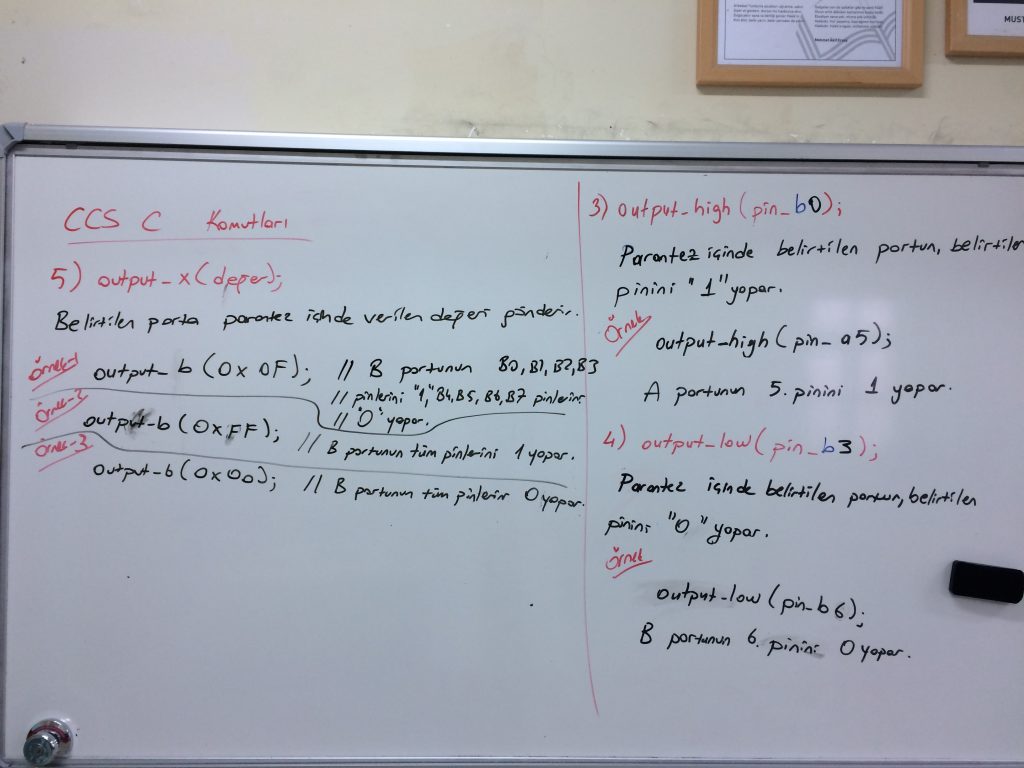 CCS C Komutları
5) output_x(değer);
Belirtilen porta parantez içinde verilen değeri gönderir.
Örnek-1
output_b(0x0F); // B portunun B0,B1,B2,B3
// pinlerini "1", B4,B5,B6,B7 pinlerini
// "0" yapar.
output_b(0xFF); // B portunun tüm pinlerini 1 yapar.
Örnek-3
output_b(0x00); // B portunun tüm pinlerini 0 yapar.
3) output_high(pin_b0);
Parantez içinde belirtilen portun, belirtilen
pinini "1" yapar.
Örnek
output_high(pin_a5);
A portunun 5. pinini 1 yapar.
4) output_low(pin_b3);
Parantez içinde belirtilen portun, belirtilen
pinini "0" yapar.
Örnek
output_low(pin_b6);
B portunun 6. pinini 0 yapar.
Mehmet Âkif Ersoy
MUST